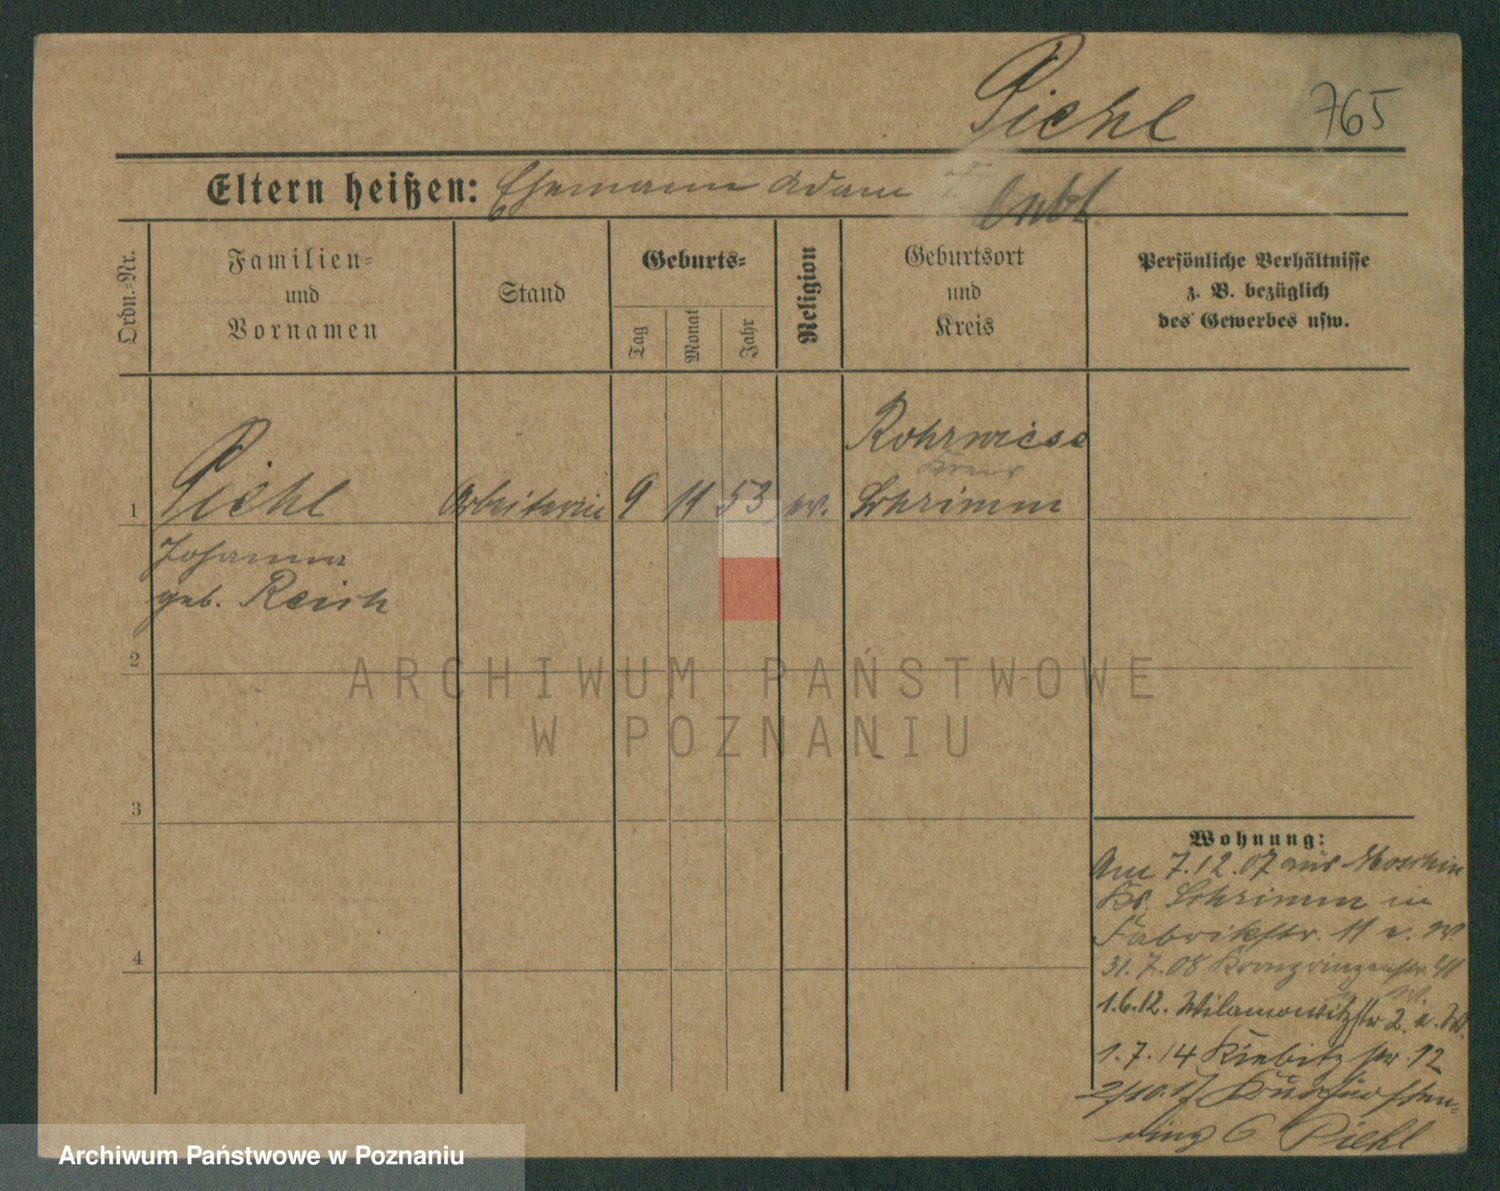 Piehl 765
Eltern heißen: Ehemann Adam †
Ordn.-Nr.
Familien-
und
Vornamen
Stand
Geburts-
Tag
Monat
Jahr
Religion
Geburtsort
und
Kreis
Persönliche Verhältnisse
z. B. bezüglich
des Gewerbes usw.
Rohrwiese
Kreis
1 Piehl Arbeiterin 9 11 53 ev. Schrimm
Johanna
geb. Reich
2
3
4
Wohnung:
Am 7.12.07 aus Moschin
Kr. Schrimm in
Fabrikstr. 11
31.7.08 Kronprinzenstr.
1.6.12. Wilamowitzstr 2.
1.7.14 Kiebitzstr. 12
2/10.17 Kurfürsten-
ring 6 Piehl
ARCHIWUM PAŃSTWOWE
W POZNANIU
Archiwum Państwowe w Poznaniu